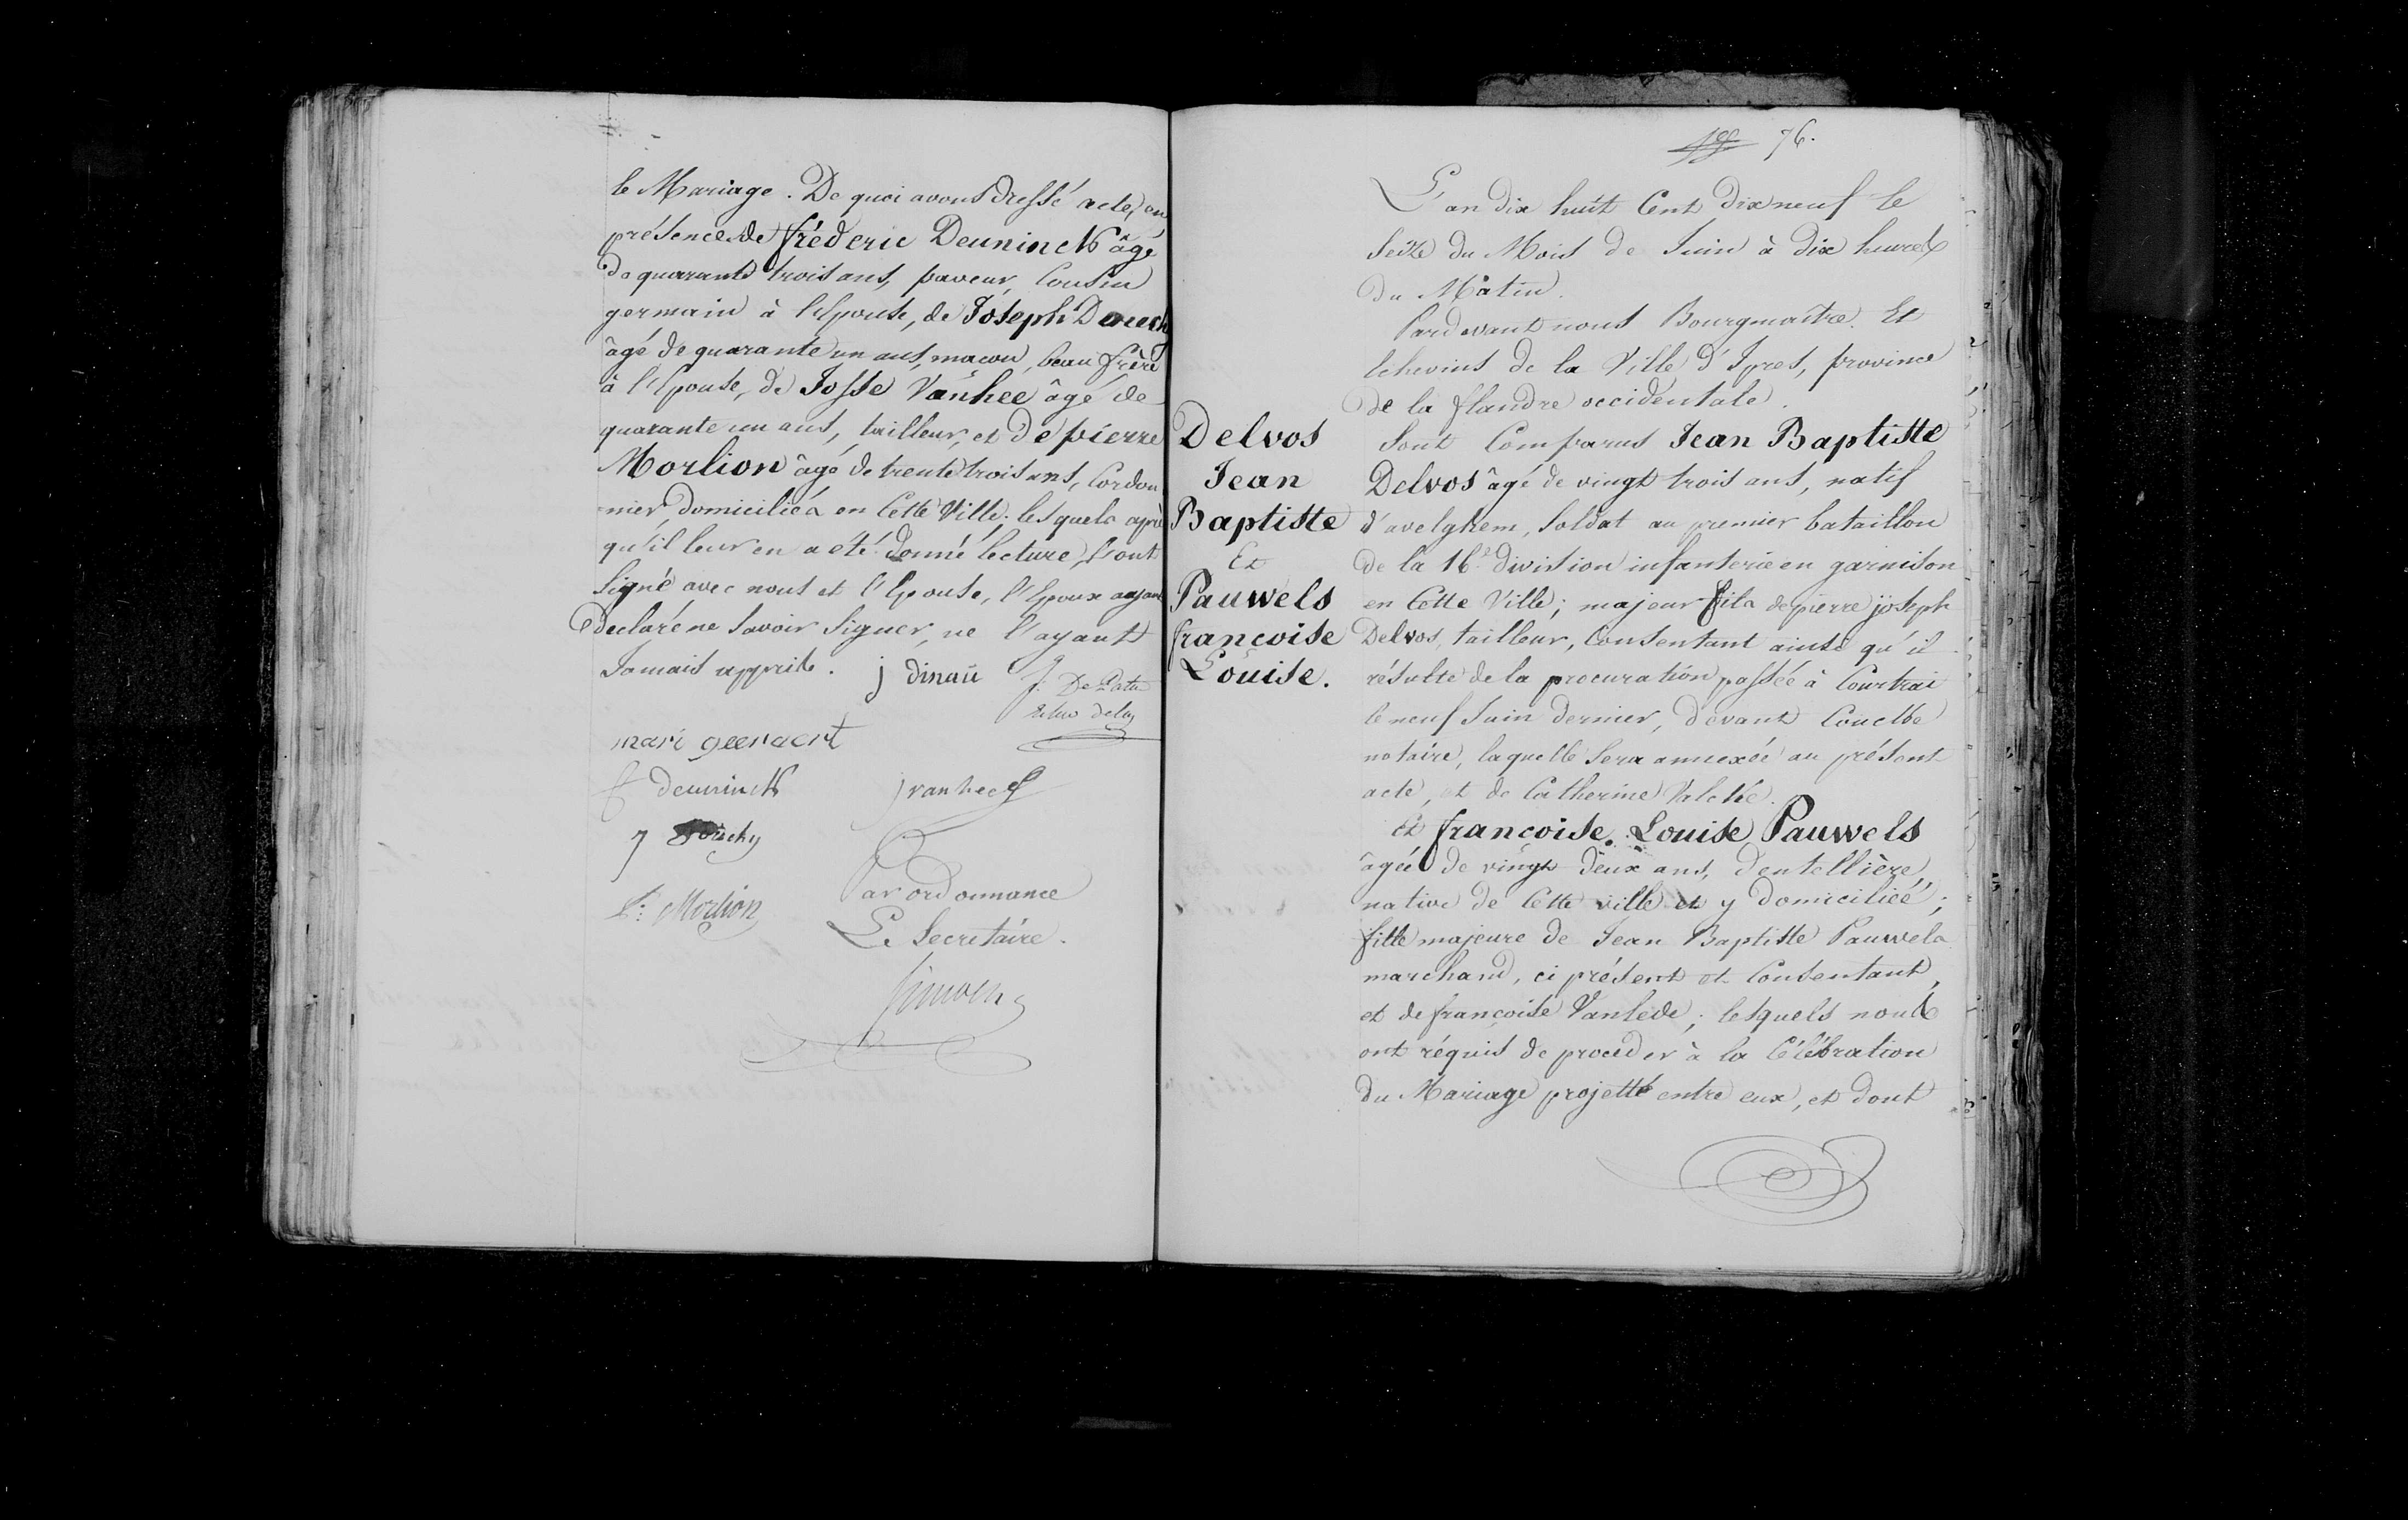 le Mariage. De quoi avons dressé acte, en
présence de fréderic Deuninck âgé
de quarante trois ans, paveur, Cousin
germain à l'Epouse, de Joseph
âgé de quarante un ans, macon, beau frère
à l'Epouse, de Josse Vanhee âgé de
quarante un ans, tailleur, et de pierre
Morlion âgé de trente trois ans, Cordon
nier, domiciliés en Cette Ville. lesquels après
qu'il leur en a été donné lecture, l'ont
Signé avec nous et l'Epouse, l'Epoux ayant
declaré ne Savoir Signer, ne l'ayant
Jamais appris. j dinau
mari geeraert
f deuninck j vanhee
j
P: Morlion
Par ordonnance
Le Secretaire.
76.
L'an dix huit Cent dix neuf le
Seize du Mois de Juin à dix heures
du Matin.
Pardevant nous Bourgmaître Et
Echevins de la Ville d'Ypres, province
de la flandre occidentale.
Delvos
Jean
Baptiste
Et
Pauwels
francoise
Louise.
Sont Comparus Jean Baptiste
Delvos âgé de vingt trois ans, natif
d'avelghem, Soldat au premier bataillon
de la 16e division infanterie en garnison
en Cette Ville; majeur fils de pierre joseph
Delvos, tailleur, Consentant ainsi qu'il
résulte de la procuration passée à Courtrai
le neuf Juin dernier, devant
notaire, laquelle Sera annexée au présent
acte, et de Catherine Valcke.
Et françoise Louise Pauwels
âgée de vingt deux ans, dentellière,
native de Cette ville et y domiciliée;
fille majeure de Jean Baptiste Pauwels
marchand, ci présent et Consentant,
et de françoise Vanlede; lesquels nous
ont réquis de proceder à la Célébration
du Mariage projetté entre eux, et dont